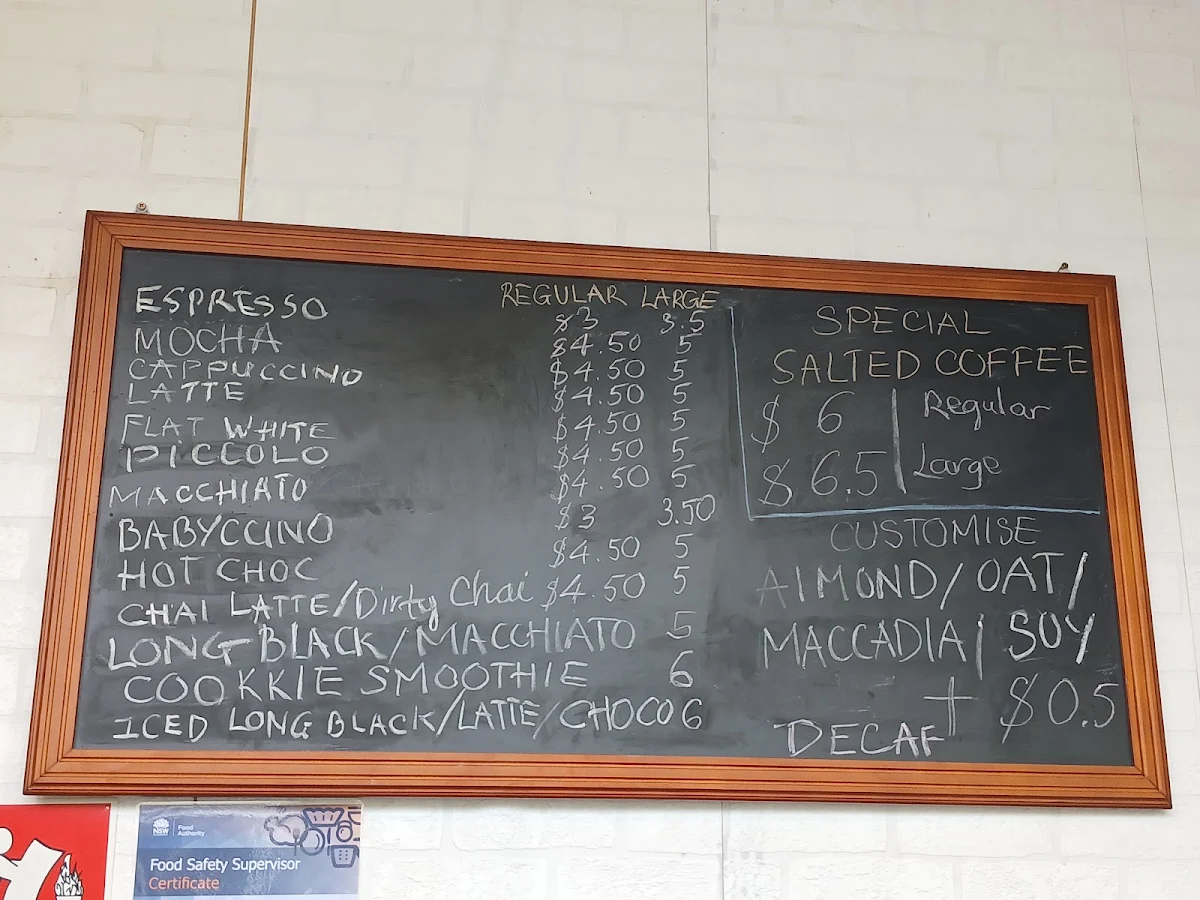 REGULAR LARGE
ESPRESSO $3 3.5
MOCHA $4.50 5
CAPPUCCINO $4.50 5
LATTE $4.50 5
FLAT WHITE $4.50 5
PICCOLO $4.50 5
MACCHIATO $4.50 5
BABYCCINO $3 3.50
HOT CHOC $4.50 5
CHAI LATTE/Dirty Chai $4.50 5
LONG BLACK/MACCHIATO 5
COOKKIE SMOOTHIE 6
ICED LONG BLACK/LATTE/CHOCO 6
SPECIAL
SALTED COFFEE
$ 6 | Regular
$ 6.5 | Large
CUSTOMISE
AlMOND/OAT/
MACCADIA/SOY
+ $0.5
DECAF
NSW
Food
Authority
Food Safety Supervisor
Certificate